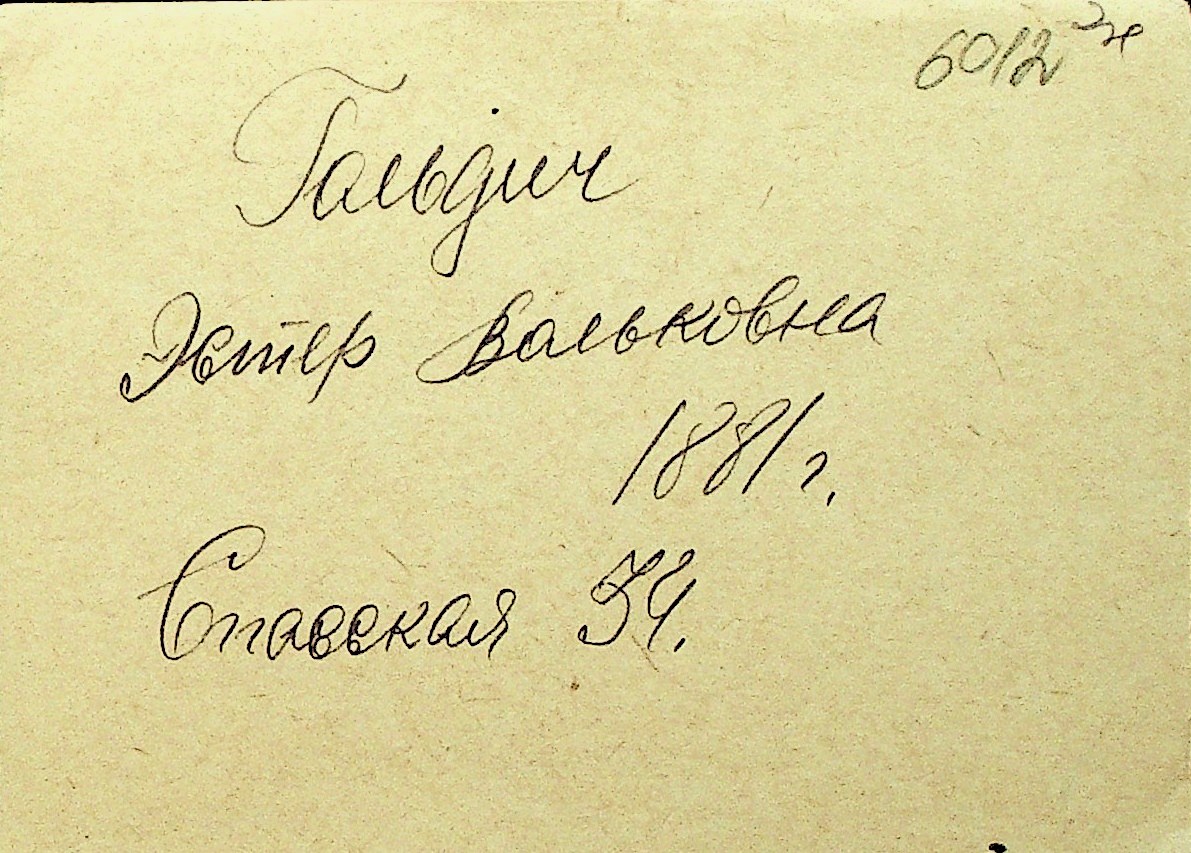 6012 эк
Гальдич
Эстер Вальковна
1881 г.
Спасская 54.